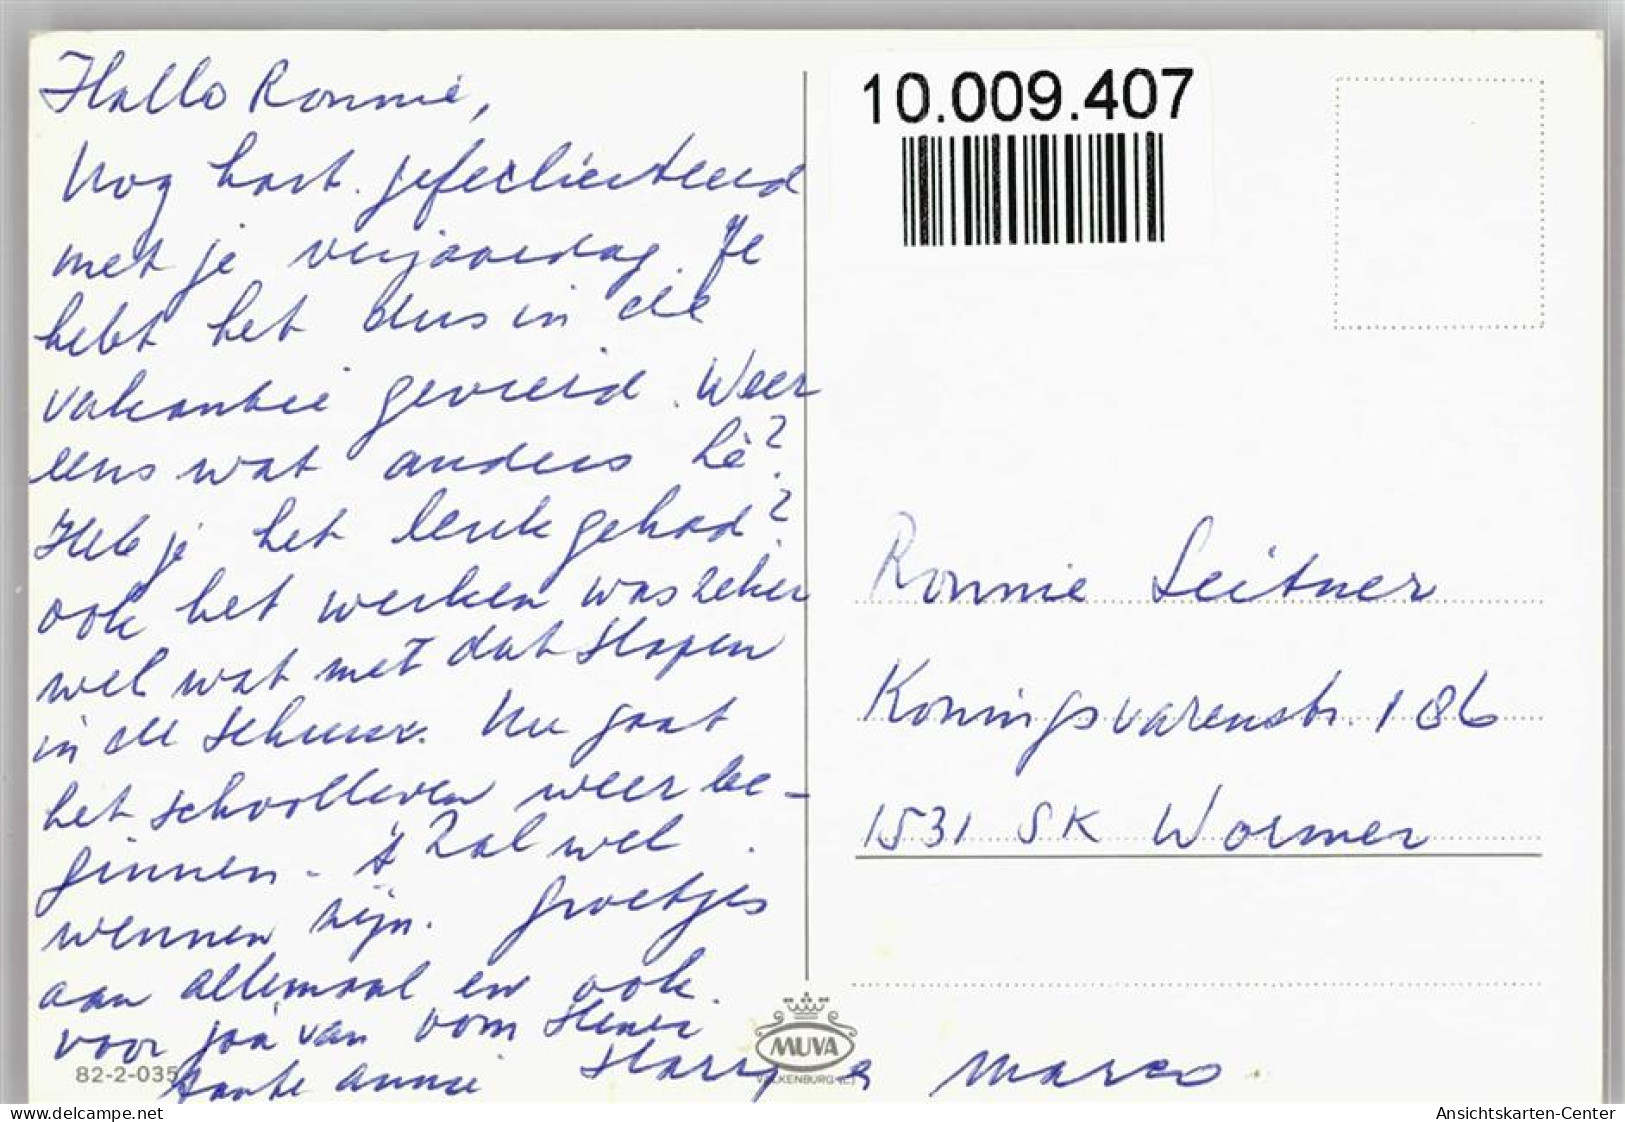 Hallo Ronnie,
Nog hart. gefeliciteerd
met je verjaardag. Je
hebt het dus in de
vakantie gevierd. Weer
eens wat anders hè?
Heb je het leuk gehad?
ook het werken was zeker
wel wat met dat slapen
in de schuur. Nu gaat
het schoolleven weer be-
ginnen. 't Zal wel
wennen zijn. Groetjes
aan allemaal en ook
voor jou van oom Henri
tante Annie Harry en Marco
10.009.407
Ronnie Leitner
Koningsvarenstr. 186
1531 SK Wormer
MUVA
VALKENBURG (L.)
82-2-035
delcampe.net
Ansichtskarten-Center